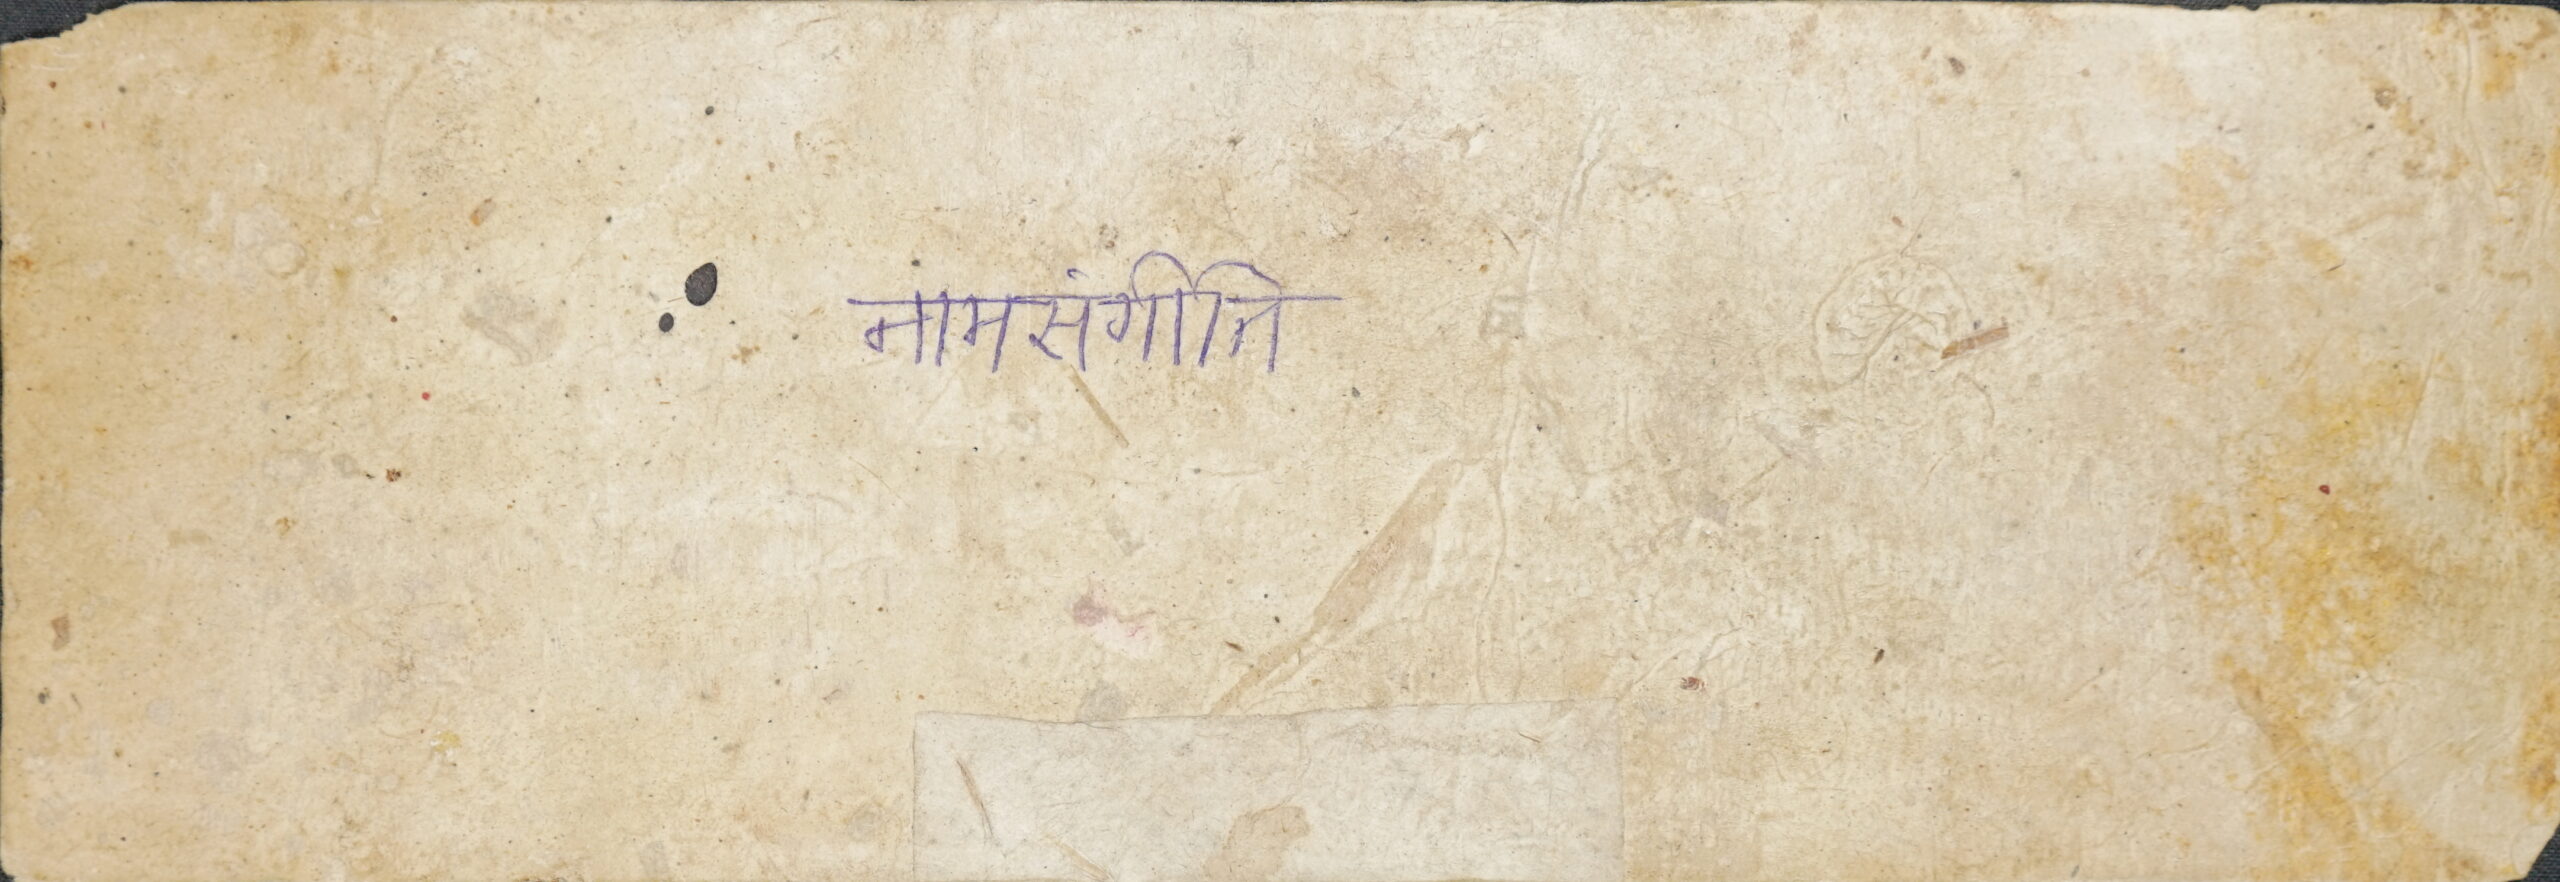 नामसंगीति